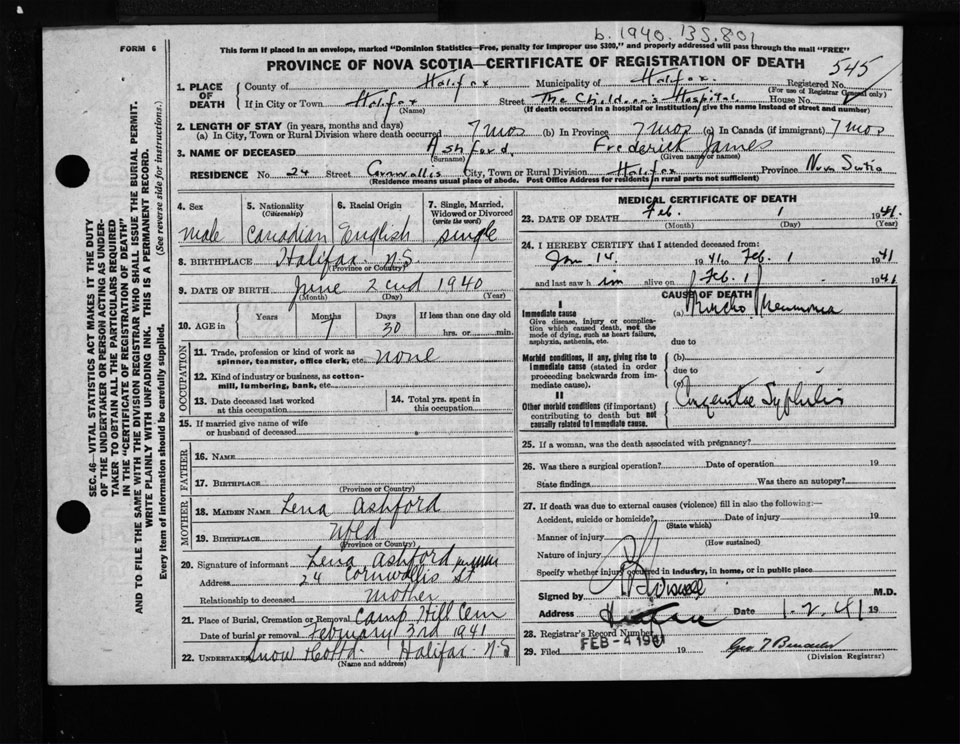 b. 1940. 135.801
FORM 6
This form if placed in an envelope, marked "Dominion Statistics—Free, penalty for improper use $300," and properly addressed will pass through the mail "FREE"
PROVINCE OF NOVA SCOTIA—CERTIFICATE OF REGISTRATION OF DEATH 545
1. PLACE OF DEATH
County of Halifax Municipality of Halifax. Registered No.
(For use of Registrar General only)
If in City or Town Halifax Street The Children's Hospital House No.
(Name) (If death occurred in a hospital or institution, give the name instead of street and number)
2. LENGTH OF STAY (in years, months and days)
(a) In City, Town or Rural Division where death occurred 7 mos (b) In Province 7 mos (c) In Canada (if immigrant) 7 mos
3. NAME OF DECEASED Ashford, Frederick James
(Surname) (Given name or names)
RESIDENCE No. 24 Street Cornwallis City, Town or Rural Division Halifax Province Nova Scotia
(Residence means usual place of abode. Post Office Address for residents in rural parts not sufficient)
4. Sex male
5. Nationality (Citizenship) Canadian
6. Racial Origin English
7. Single, Married, Widowed or Divorced (write the word) single
8. BIRTHPLACE Halifax N.S.
(Province or Country)
9. DATE OF BIRTH June 2nd 1940
(Month) (Day) (Year)
10. AGE in Years Months 7 Days 30 If less than one day old hrs. or min.
OCCUPATION
11. Trade, profession or kind of work as spinner, teamster, office clerk, etc. none
12. Kind of industry or business, as cotton-mill, lumbering, bank, etc.
13. Date deceased last worked at this occupation
14. Total yrs. spent in this occupation
15. If married give name of wife or husband of deceased
FATHER
16. NAME
17. BIRTHPLACE
(Province or Country)
MOTHER
18. MAIDEN NAME Lena Ashford
19. BIRTHPLACE Nfld
(Province or Country)
20. Signature of informant Lena Ashford
Address 24 Cornwallis St
Relationship to deceased mother
21. Place of Burial, Cremation or Removal Camp Hill Cem
Date of burial or removal February 3rd 1941
22. UNDERTAKER Snow & Co Ltd. Halifax N.S
(Name and address)
MEDICAL CERTIFICATE OF DEATH
23. DATE OF DEATH Feb. 1 1941.
(Month) (Day) (Year)
24. I HEREBY CERTIFY that I attended deceased from:
Jan 14. 1941 to Feb. 1 1941
and last saw him alive on Feb. 1 1941
CAUSE OF DEATH
I
Immediate cause
Give disease, injury or complication which caused death, not the mode of dying, such as heart failure, asphyxia, asthenia, etc.
(a) Broncho Pneumonia
due to
Morbid conditions, if any, giving rise to immediate cause (stated in order proceeding backwards from immediate cause).
(b)
due to
(c)
II
Other morbid conditions (if important) contributing to death but not causally related to immediate cause.
Congenital Syphilis
25. If a woman, was the death associated with pregnancy?
26. Was there a surgical operation? Date of operation 19
State findings Was there an autopsy?
27. If death was due to external causes (violence) fill in also the following:—
Accident, suicide or homicide? Date of injury 19
(State which)
Manner of injury
(How sustained)
Nature of injury
Specify whether injury occurred in industry, in home, or in public place
Signed by M.D.
Address Halifax Date 1.2.41 19
28. Registrar's Record Number
29. Filed FEB -4 1941 19
(Division Registrar)
SEC. 46—VITAL STATISTICS ACT MAKES IT THE DUTY OF THE UNDERTAKER OR PERSON ACTING AS UNDERTAKER TO OBTAIN ALL THE PARTICULARS REQUIRED IN THE "CERTIFICATE OF REGISTRATION OF DEATH" AND TO FILE THE SAME WITH THE DIVISION REGISTRAR WHO SHALL ISSUE THE BURIAL PERMIT.
WRITE PLAINLY WITH UNFADING INK. THIS IS A PERMANENT RECORD.
Every item of information should be carefully supplied. (See reverse side for instructions.)